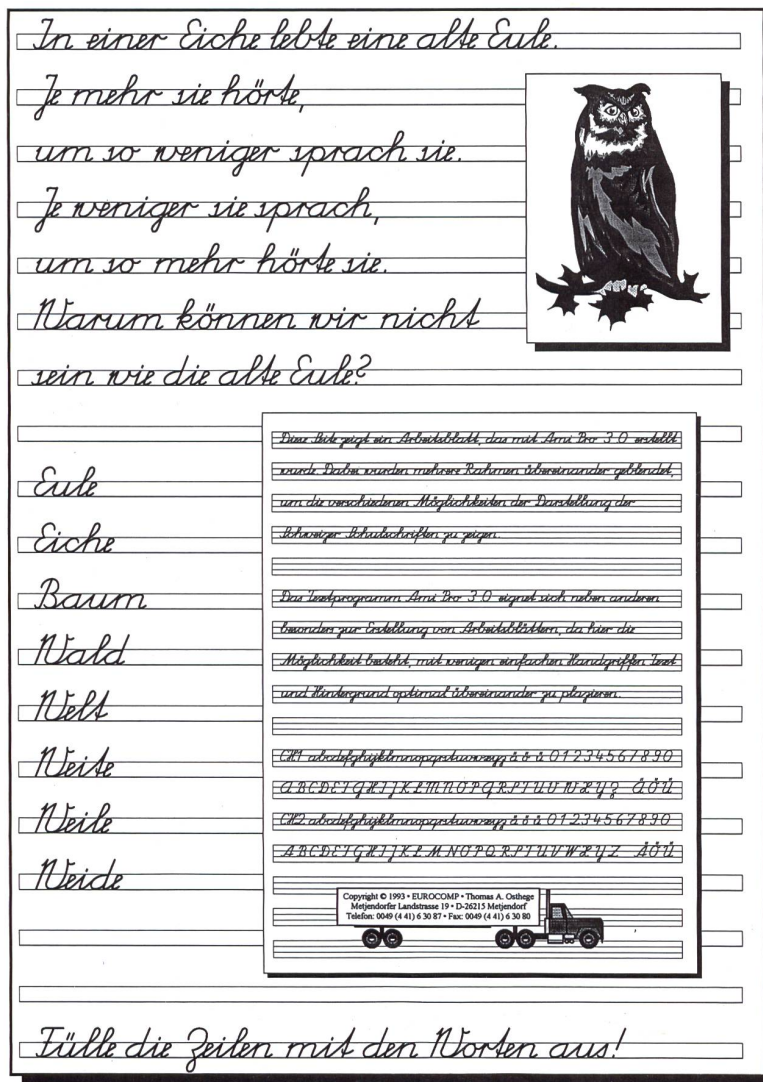 In einer Eiche lebte eine alte Eule.
Je mehr sie hörte,
um so weniger sprach sie.
Je weniger sie sprach,
um so mehr hörte sie.
Warum können wir nicht
sein wie die alte Eule?
Eule
Eiche
Baum
Wald
Welt
Weite
Weile
Weide
Diese Seite zeigt ein Arbeitsblatt, das mit Ami Pro 3.0 erstellt
wurde. Dabei wurden mehrere Rahmen übereinander geblendet,
um die verschiedenen Möglichkeiten der Darstellung der
Schweizer Schulschriften zu zeigen.
Das Textprogramm Ami Pro 3.0 eignet sich neben anderen
besonders zur Erstellung von Arbeitsblättern, da hier die
Möglichkeit besteht, mit wenigen einfachen Handgriffen Text
und Hintergrund optimal übereinander zu plazieren.
CH1 abcdefghijklmnopqrstuvwxyz ä ö ü 01234567890
ABCDEFGHIJKLMNOPQRSTUVWXYZ ÄÖÜ
CH2 abcdefghijklmnopqrstuvwxyz ä ö ü 01234567890
ABCDEFGHIJKLMNOPQRSTUVWXYZ ÄÖÜ
Copyright © 1993 • EUROCOMP • Thomas A. Osthege
Metjendorfer Landstrasse 19 • D-26215 Metjendorf
Telefon: 0049 (4 41) 6 30 87 • Fax: 0049 (4 41) 6 30 80
Fülle die Zeilen mit den Worten aus!